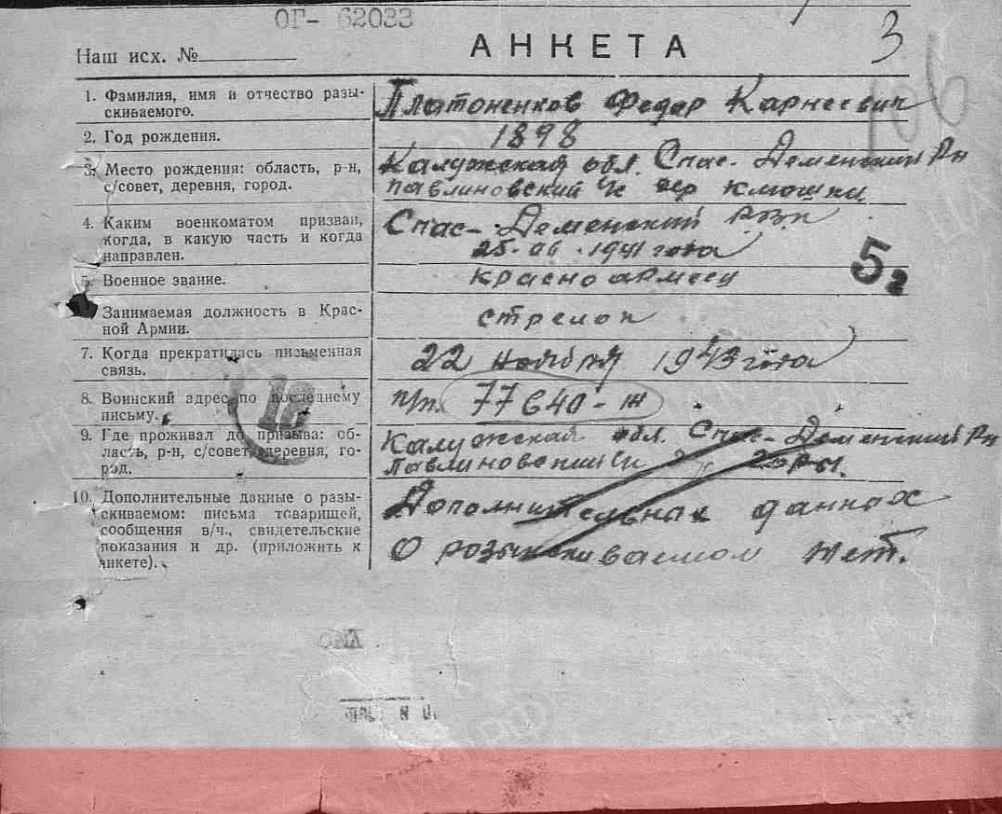 ОГ- 62033
3
Наш исх. №
АНКЕТА
106
1. Фамилия, имя и отчество разы-
скиваемого.
Платоненков Федор Карнеевич
2. Год рождения.
1898
3. Место рождения: область, р-н,
с/совет, деревня, город.
Калужская обл. Спас-Деменский Рн
Павлиновский с/с дер Клюшки
4. Каким военкоматом призван,
когда, в какую часть и когда
направлен.
Спас-Деменский РВК
25-06-1941 года
5г
5. Военное звание.
красноармеец
Занимаемая должность в Крас-
ной Армии.
стрелок
7. Когда прекратилась письменная
связь.
22 ноября 1943 года
8. Воинский адрес по последнему
письму.
п/п. 77640-ж
18
9. Где проживал до призыва: об-
ласть, р-н, с/совет, деревня, го-
род.
Калужская обл. Спас-Деменский Рн
Павлиновский
10. Дополнительные данные о разы-
скиваемом: письма товарищей,
сообщения в/ч., свидетельские
показания и др. (приложить к
анкете).
Дополнительных данных
О розыскиваемом нет.